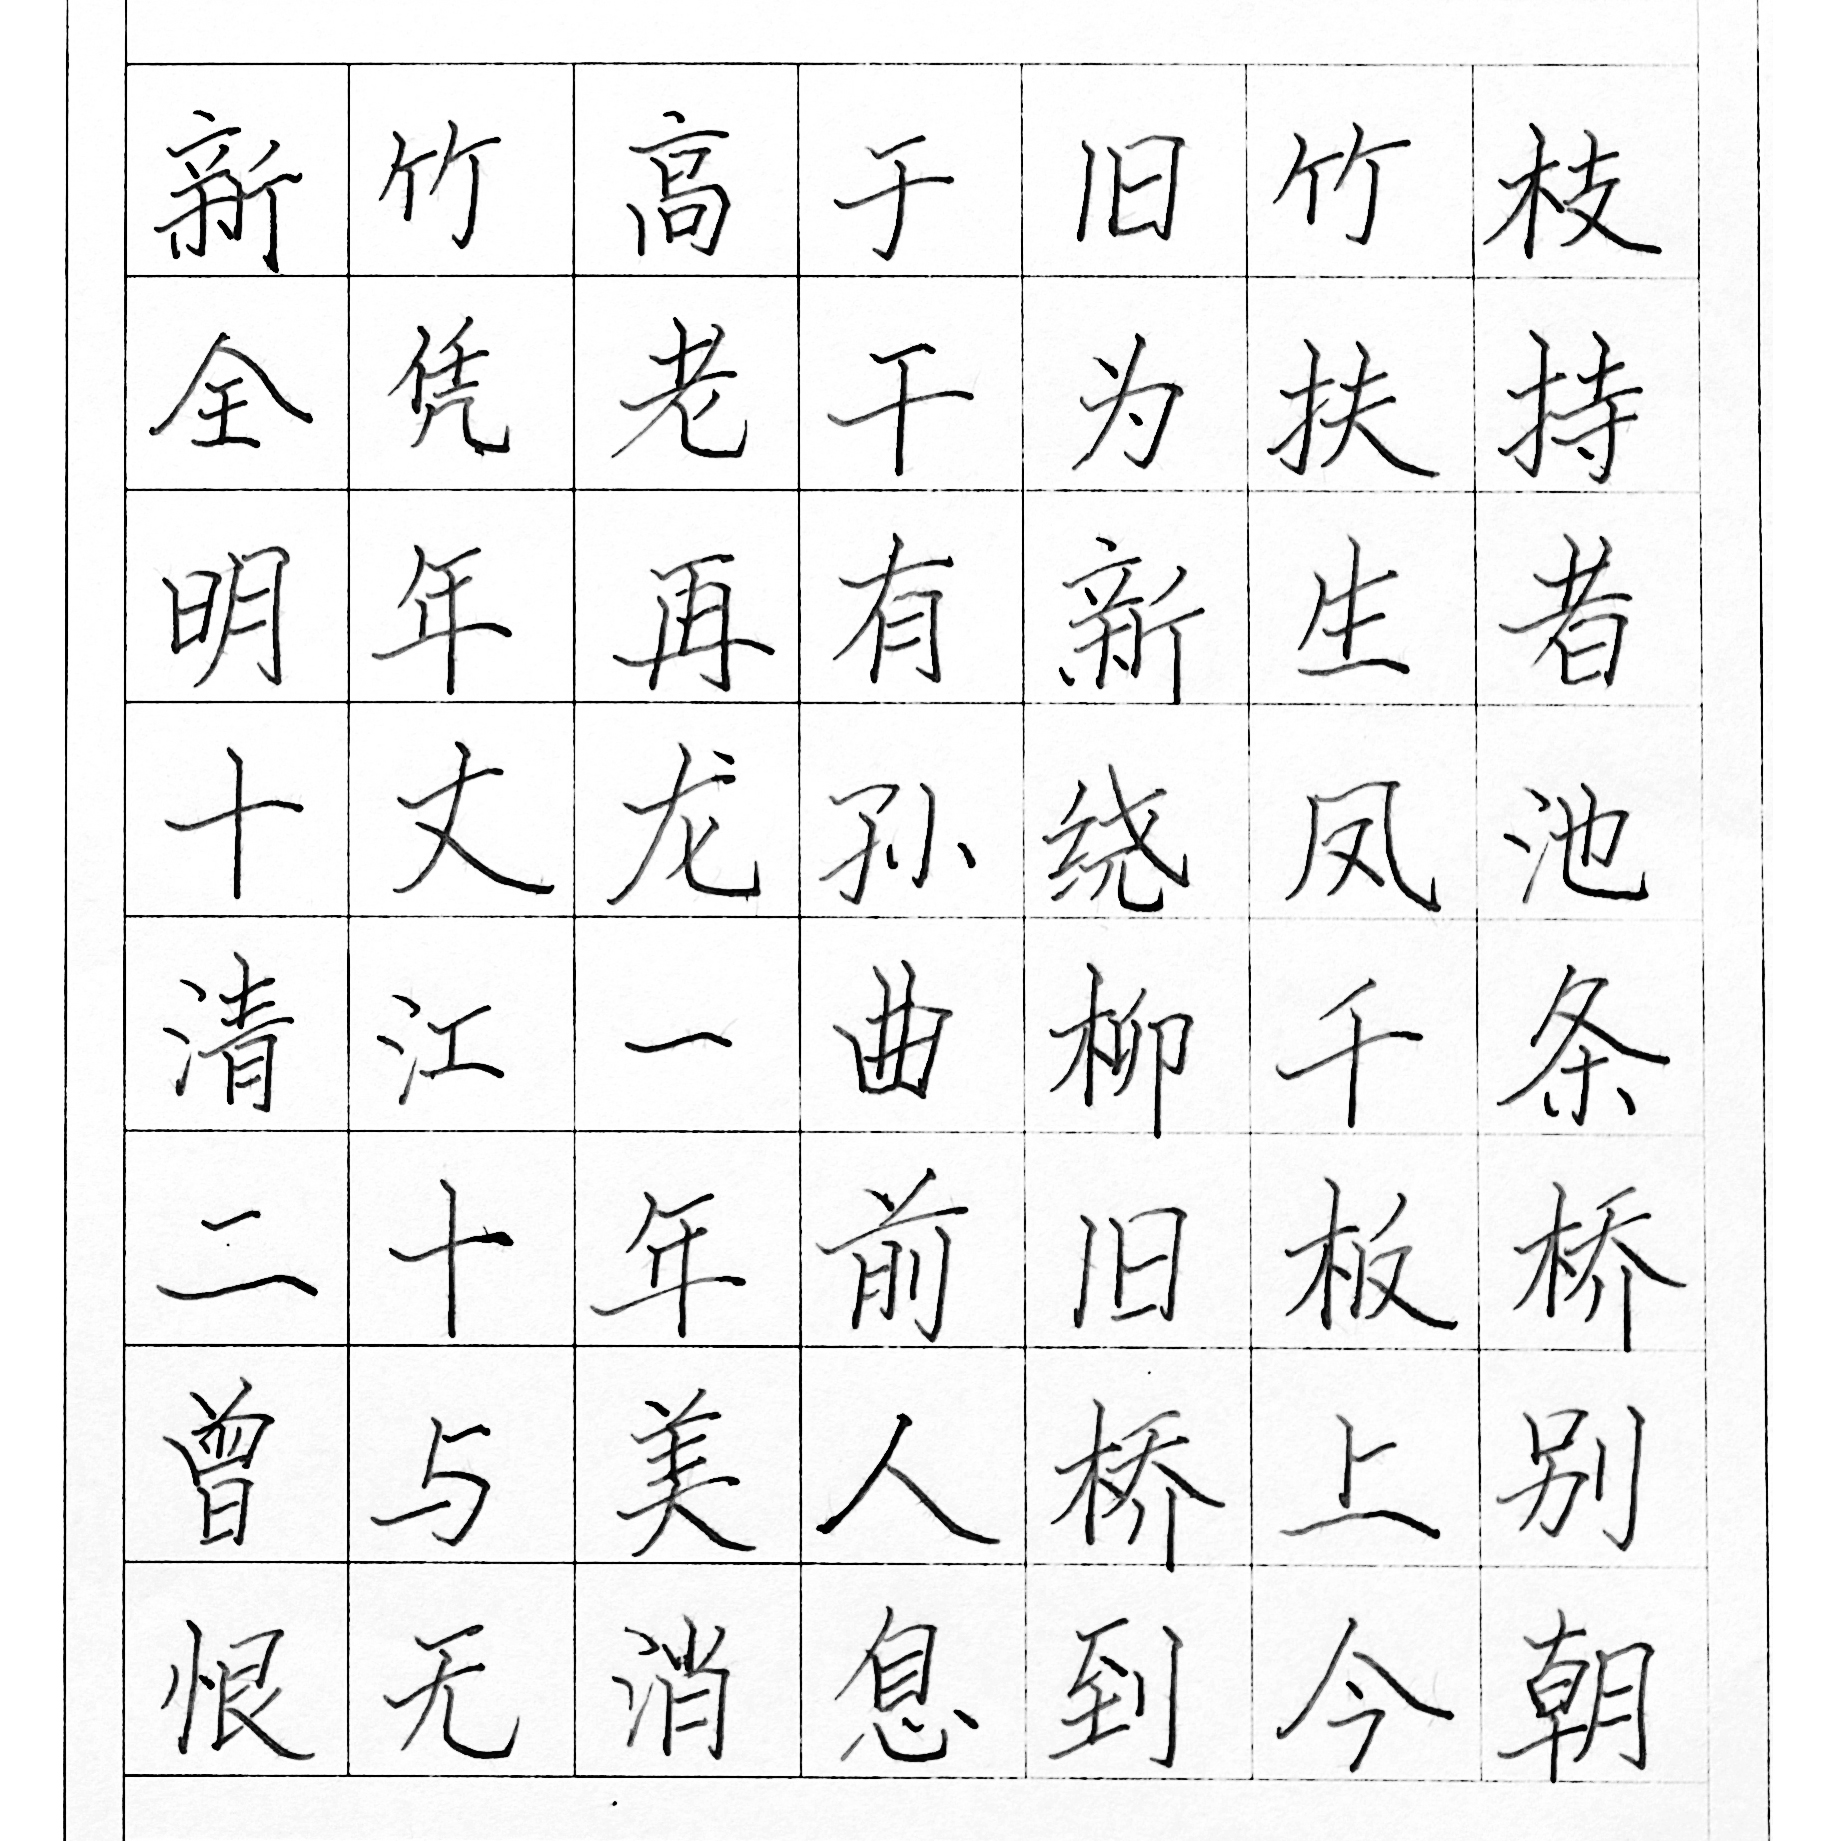 新竹高于旧竹枝
全凭老干为扶持
明年再有新生者
十丈龙孙绕凤池
清江一曲柳千条
二十年前旧板桥
曾与美人桥上别
恨无消息到今朝